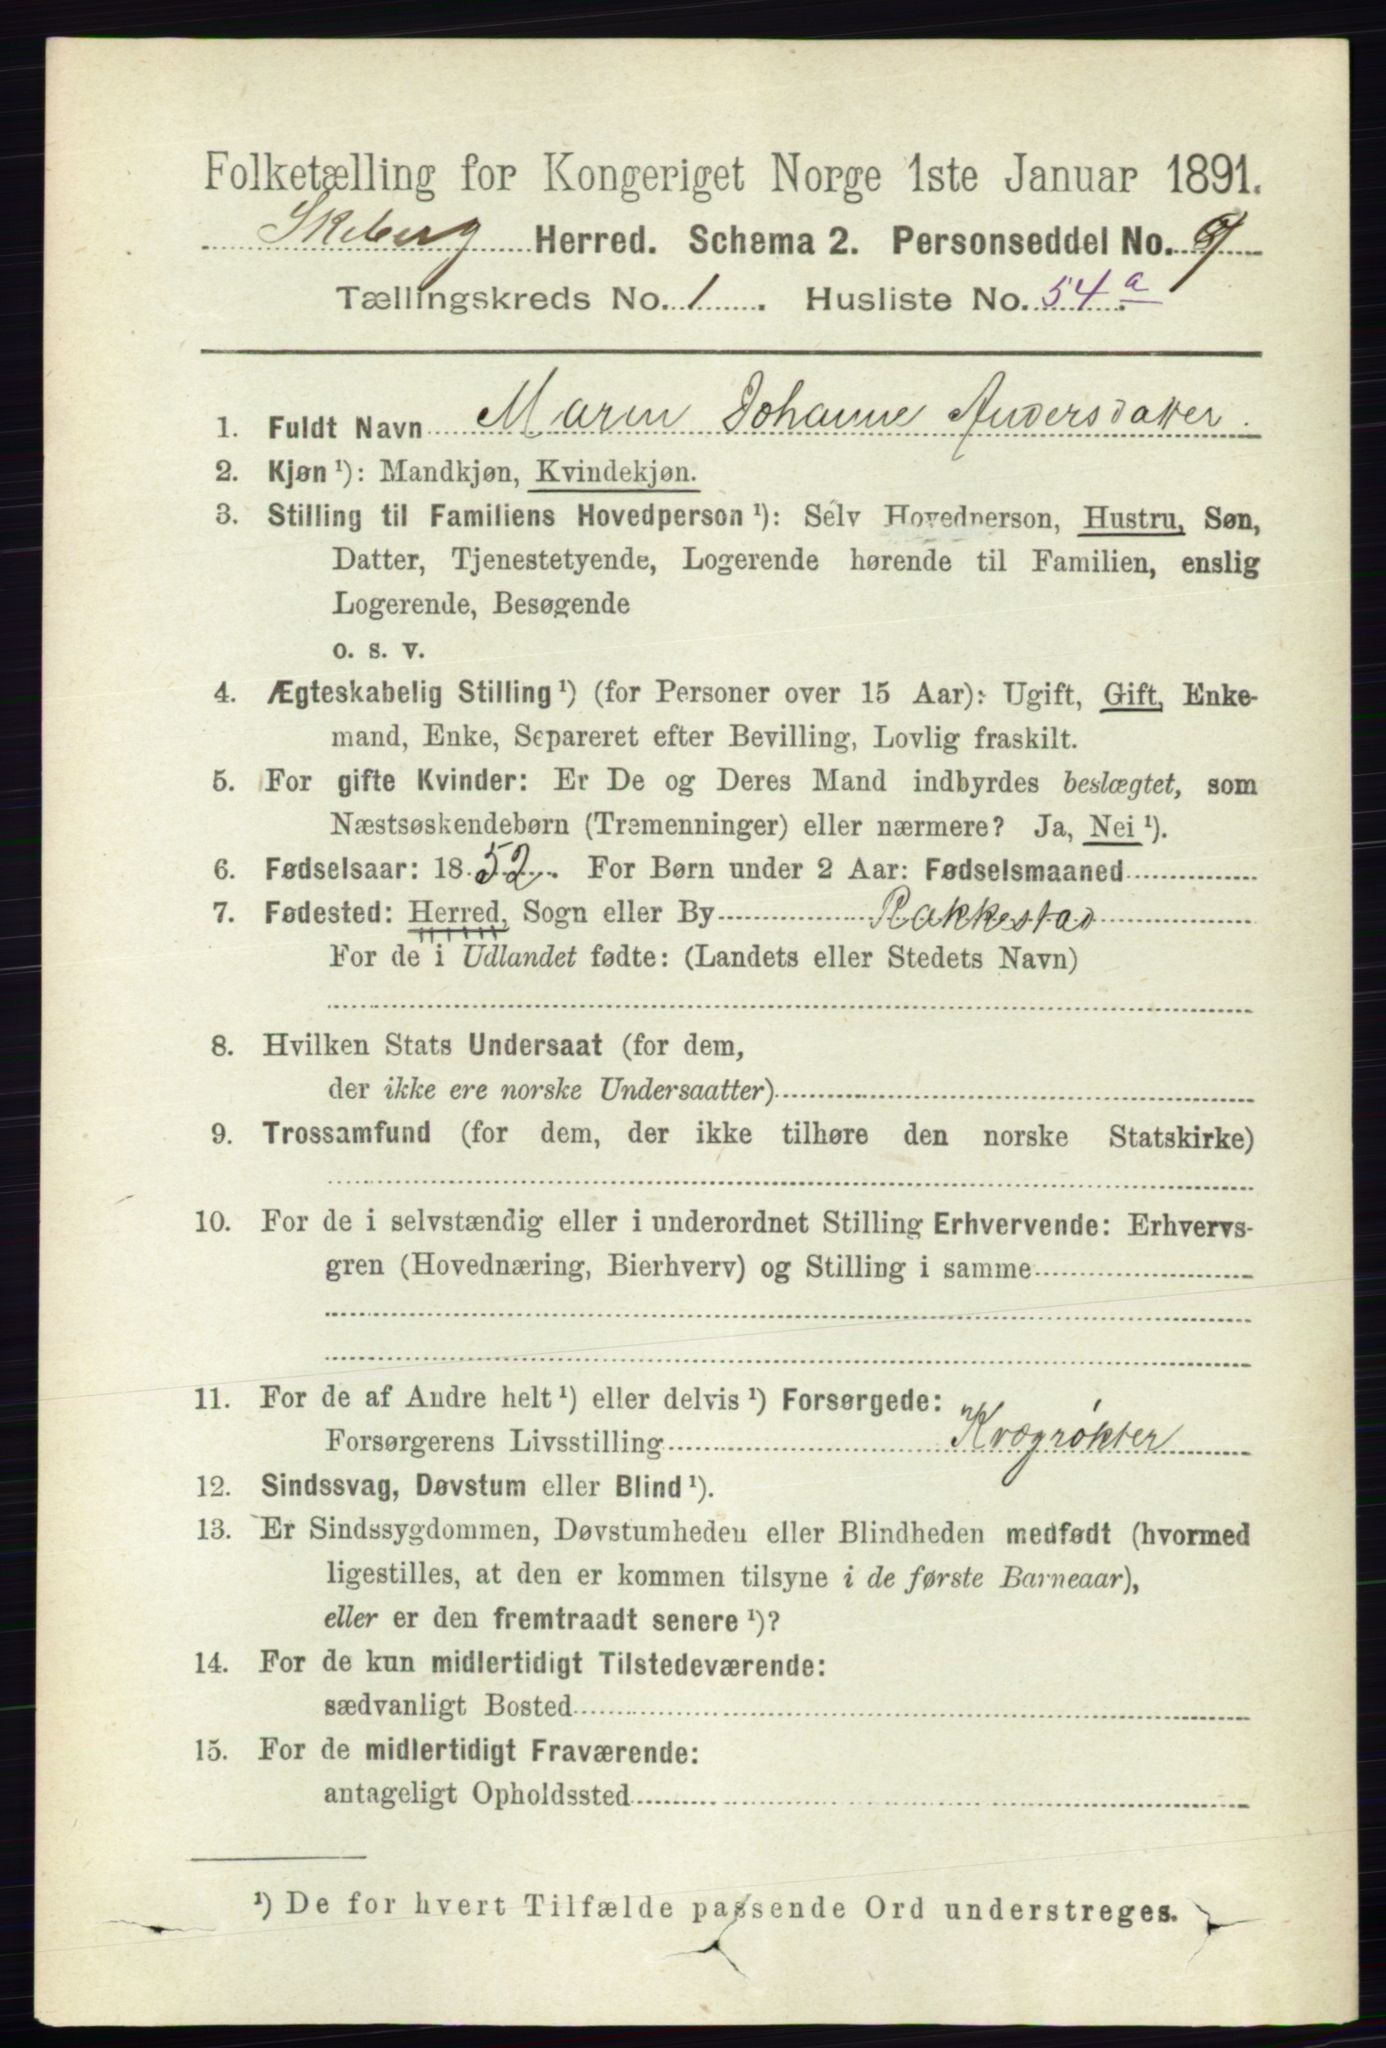 Folketælling for Kongeriget Norge 1ste Januar 1891.
Skeberg Herred. Schema 2. Personseddel No. 9
Tællingskreds No. 1. Husliste No. 54 a
1. Fuldt Navn Maren Johanne Andersdatter.
2. Kjøn ¹): Mandkjøn, Kvindekjøn.
3. Stilling til Familiens Hovedperson ¹): Selv Hovedperson, Hustru, Søn,
Datter, Tjenestetyende, Logerende hørende til Familien, enslig
Logerende, Besøgende
o. s. v.
4. Ægteskabelig Stilling ¹) (for Personer over 15 Aar): Ugift, Gift, Enke-
mand, Enke, Separeret efter Bevilling, Lovlig fraskilt.
5. For gifte Kvinder: Er De og Deres Mand indbyrdes beslægtet, som
Næstsøskendebørn (Tremenninger) eller nærmere? Ja, Nei ¹).
6. Fødselsaar: 1852. For Børn under 2 Aar: Fødselsmaaned
7. Fødested: Herred, Sogn eller By Rakkestad
For de i Udlandet fødte: (Landets eller Stedets Navn)
8. Hvilken Stats Undersaat (for dem,
der ikke ere norske Undersaatter)
9. Trossamfund (for dem, der ikke tilhøre den norske Statskirke)
10. For de i selvstændig eller i underordnet Stilling Erhvervende: Erhvervs-
gren (Hovednæring, Bierhverv) og Stilling i samme
11. For de af Andre helt ¹) eller delvis ¹) Forsørgede:
Forsørgerens Livsstilling Kvægrøkter
12. Sindssvag, Døvstum eller Blind ¹).
13. Er Sindssygdommen, Døvstumheden eller Blindheden medfødt (hvormed
ligestilles, at den er kommen tilsyne i de første Barneaar),
eller er den fremtraadt senere ¹)?
14. For de kun midlertidigt Tilstedeværende:
sædvanligt Bosted
15. For de midlertidigt Fraværende:
antageligt Opholdssted
¹) De for hvert Tilfælde passende Ord understreges.